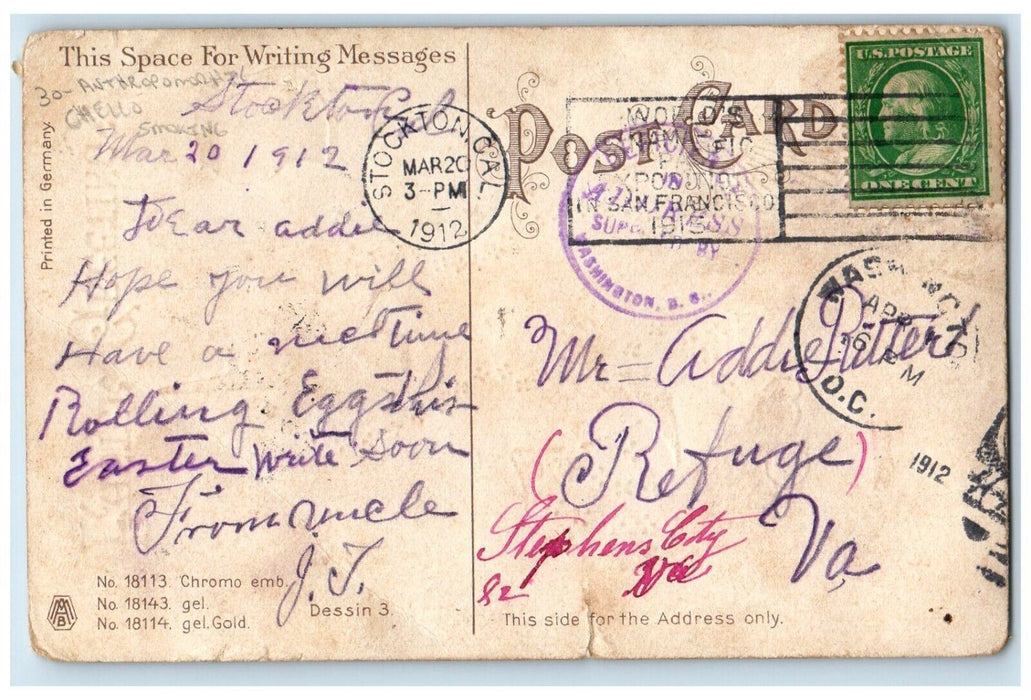 This Space For Writing Messages
30- ANTHROPOMORPHIC
CHELLO
SMOKING
Stockton Cal
Mar 20 1912
Dear addie
Hope you will
Have a nice time
Rolling Eggs this
Easter Write Soon
From uncle
J. T.
Printed in Germany.
No. 18113. Chromo emb.
No. 18143. gel.
No. 18114. gel. Gold.
Dessin 3.
MB
POST CARD
STOCKTON, CAL.
MAR 20
3-PM
1912
WORLD'S
PANAMA PACIFIC
EXPOSITION
IN SAN FRANCISCO
1915
U.S. POSTAGE
ONE CENT
ADDRESS
SUPPLIED BY
WASHINGTON, D. C.
WASHINGTON
APR
6 PM
D.C.
1912
Mr = Addie Ritter
(Refuge)
Va
Stephens City
Va
82
This side for the Address only.